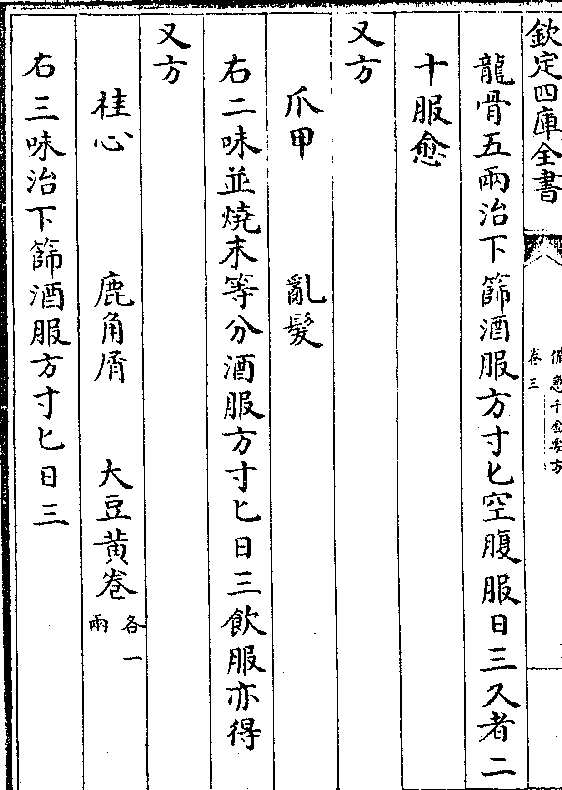 欽定四庫全書
備急千金要方
卷三
龍骨五兩治下篩酒服方寸匕空腹服日三久者二
十服愈
又方
爪甲　亂髮
右二味並燒末等分酒服方寸匕日三飲服亦得
又方
桂心　鹿角屑　大豆黃卷各一兩
右三味治下篩酒服方寸匕日三